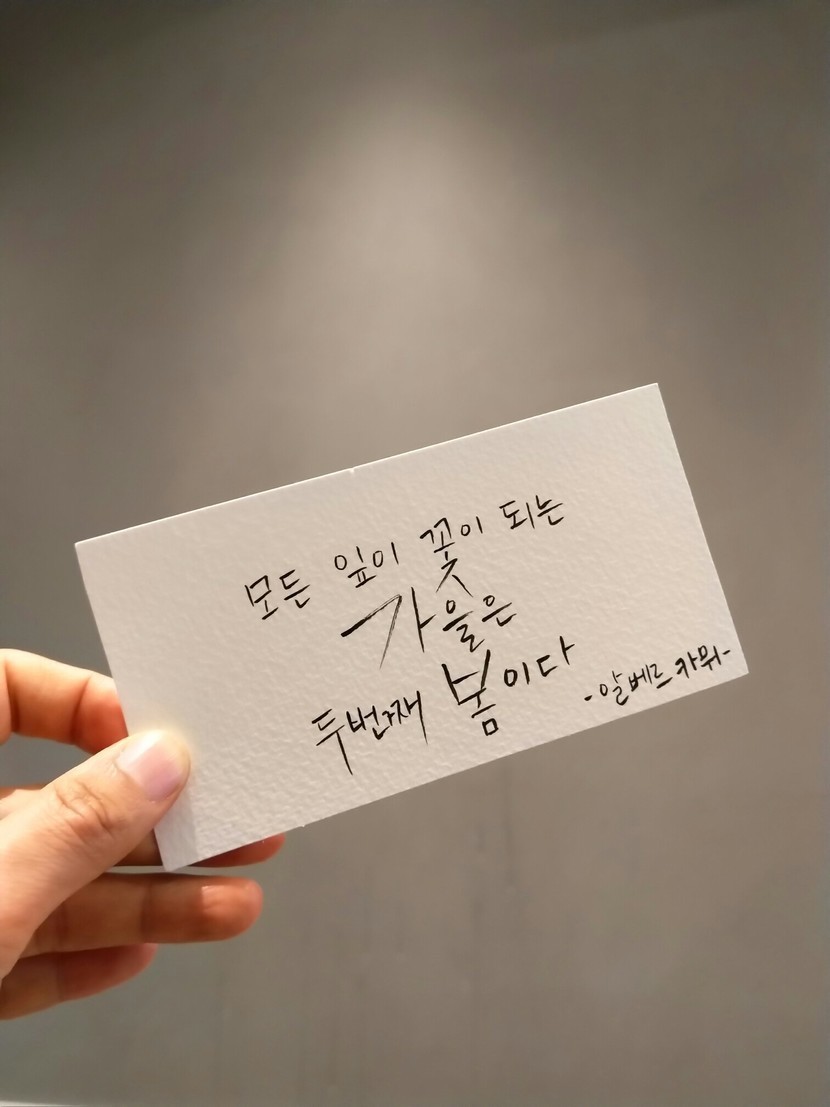 모든 잎이 꽃이 되는
가을은
두번째 봄이다
-알베르 카뮈-